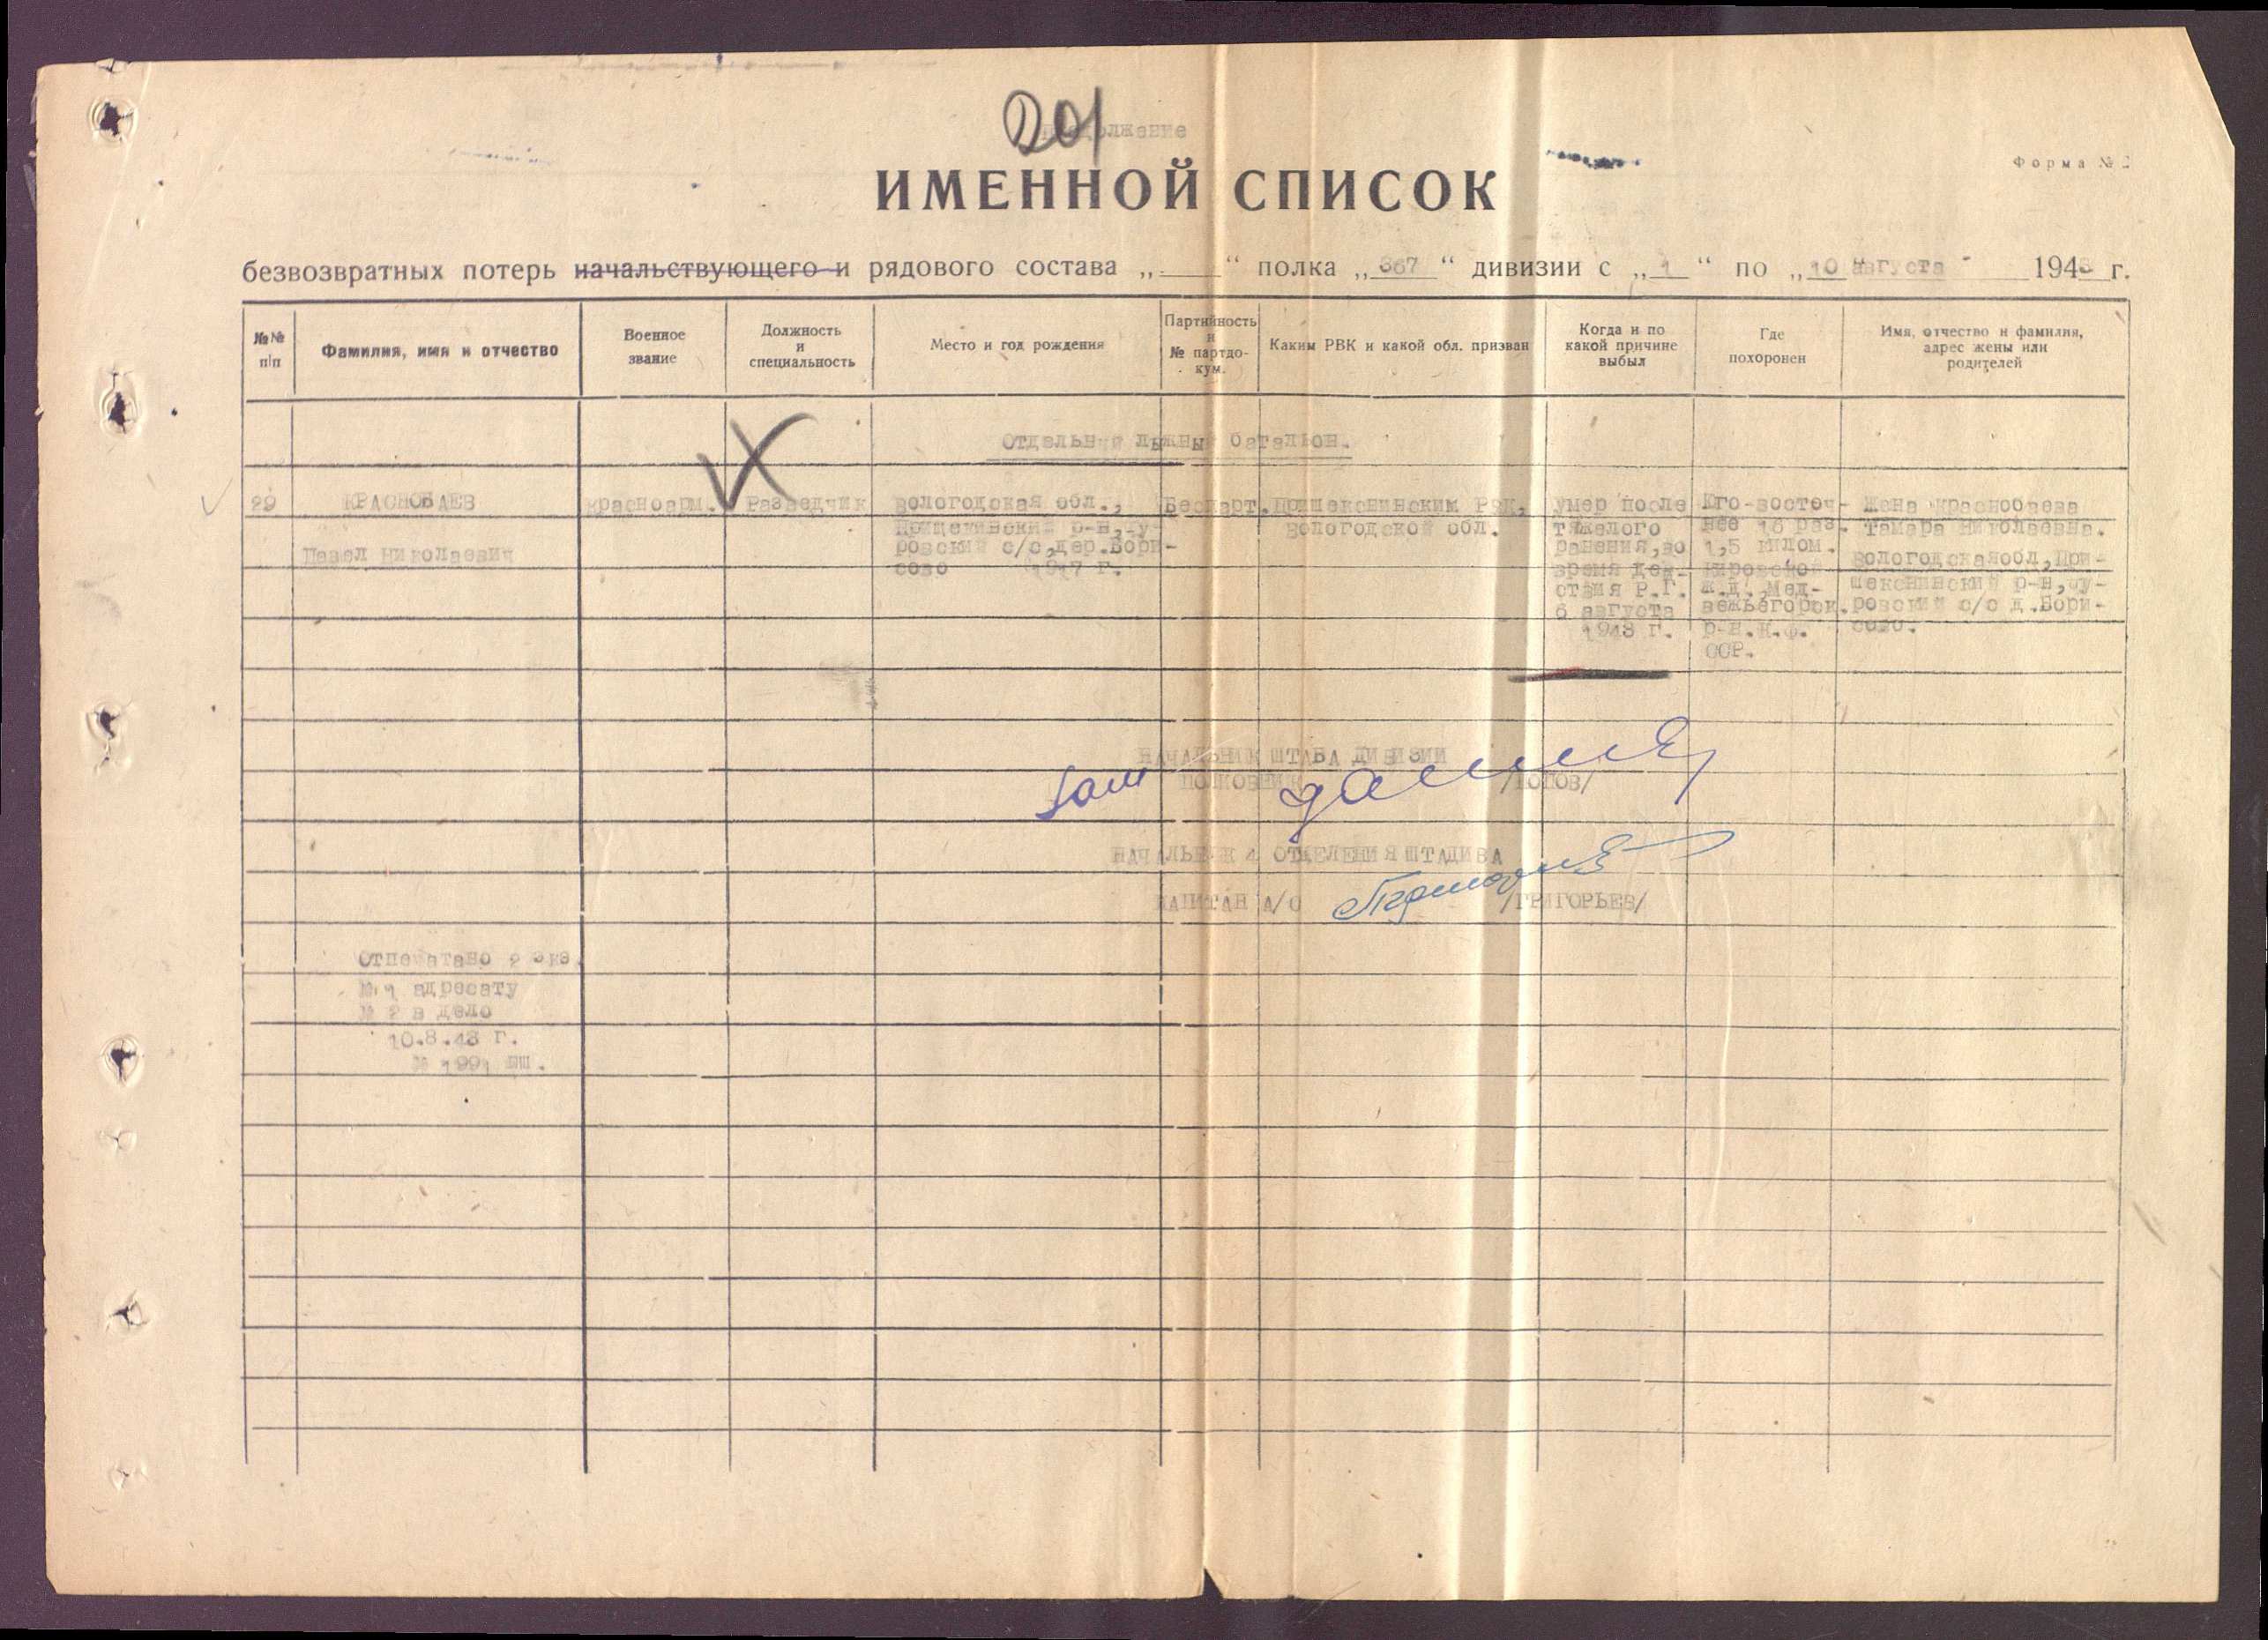 201
Продолжение
Форма № 2
ИМЕННОЙ СПИСОК
безвозвратных потерь начальствующего и рядового состава „ “ полка „367“ дивизии с „1“ по „10“ августа 1943 г.
№№ п/п
Фамилия, имя и отчество
Военное звание
Должность и специальность
Место и год рождения
Партийность и № партдокум.
Каким РВК и какой обл. призван
Когда и по какой причине выбыл
Где похоронен
Имя, отчество и фамилия, адрес жены или родителей
Отдельный лыжный батальон.
29
КРАСНОБАЕВ
Павел Николаевич
красноарм.
Разведчик
Вологодская обл.,
Пришекнинский р-н, Су-
ровский с/с, дер. Бори-
сово 1917 г.
Беспарт.
Пришекснинским РВК,
Вологодской обл.
Умер после
тяжелого
ранения, во
время дей-
ствия Р.Г.
6 августа
1943 г.
Юго-восточ-
нее 16 раз.
1,5 килом.
Кировской
ж.д. Мед-
вежьегорск.
р-н. К.Ф.
ССР.
Жена Краснобаева
Тамара Николаевна.
Вологодская обл, При-
шекснинский р-н, Су-
ровский с/с д. Бори-
сово.
НАЧАЛЬНИК ШТАБА ДИВИЗИИ
ПОЛКОВНИК /ПОПОВ/
НАЧАЛЬНИК 4 ОТДЕЛЕНИЯ ШТАДИВА
КАПИТАН А/С /ГРИГОРЬЕВ/
Отпечатано 2 экз.
№ 1 адресату
№ 2 в дело
10.8.43 г.
№ 1991 ЕШ.